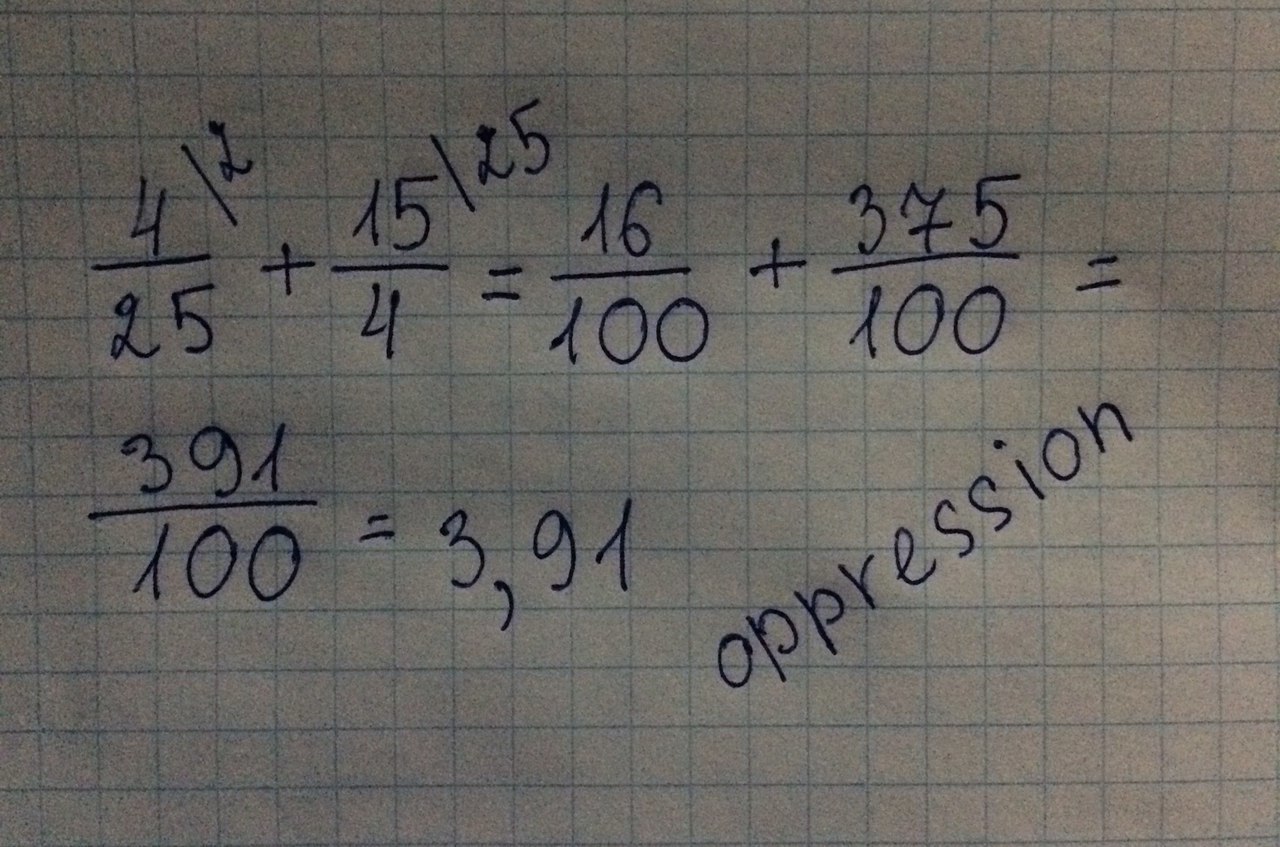 4/25 \2 + 15/4 \25 = 16/100 + 375/100 =
391/100 = 3,91
oppression